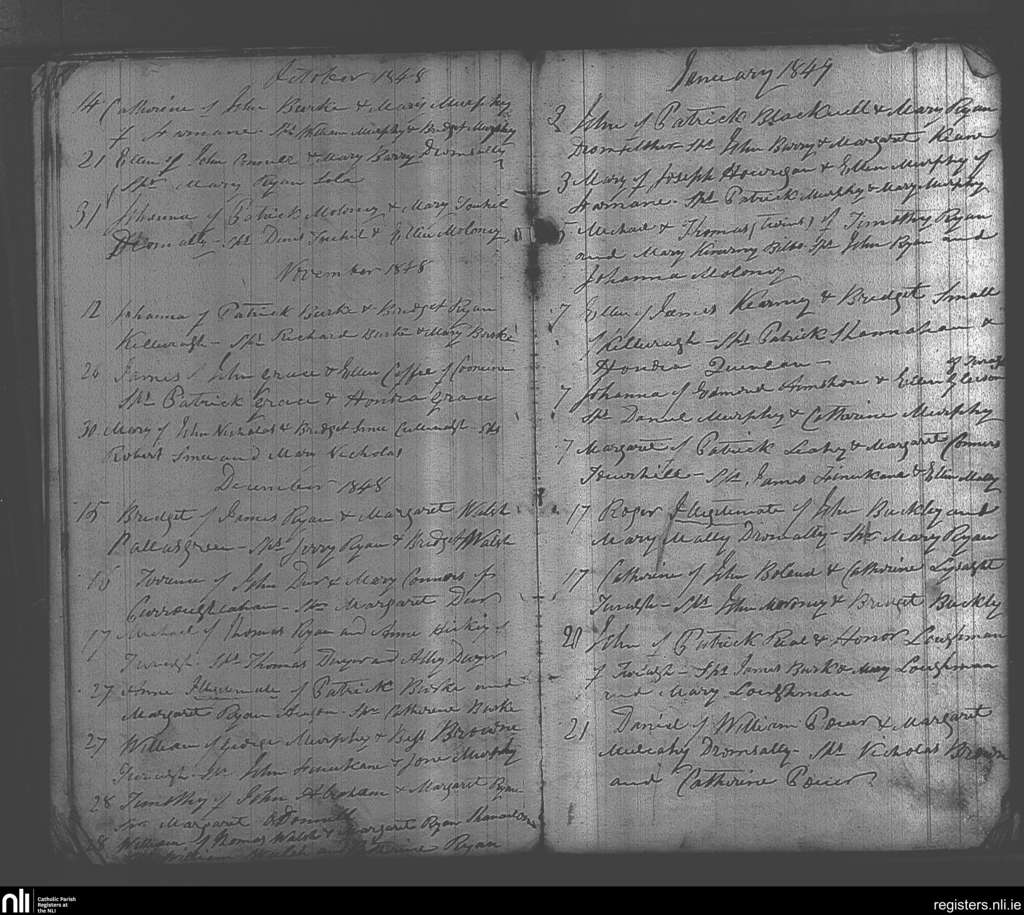 October 1848
14 Catherine of John Burke & Mary Murphy
of Farnane. Sps William Murphy & Bridget Murphy
21 Ellen of John & Mary Barry Dromsally
Spr Mary Ryan Lola
31 Johanna of Patrick Moloney & Mary
Dromsally - Sps Denis & Ellen Moloney
November 1848
12 Johanna of Patrick Burke & Bridget Ryan
Killuragh - Sps Richard Burke & Mary Burke
26 James of John Grace & Ellen Coffee of
Sps Patrick Grace & Honora Grace
30 Mary of John Nicholas & Bridget - Sps
Robert and Mary Nicholas
December 1848
15 Bridget of James Ryan & Margaret Walsh
Pallasgreen - Sps Jerry Ryan & Bridget Walsh
16 Terence of John & Mary Connors of
- Spr Margaret
17 Michael of Thomas Ryan and Anne Hickey of
Turagh. Sps Thomas Dwyer and Ally Dwyer
27 Anne Illegitimate of Patrick Burke and
Margaret Ryan - Spr Catherine Burke
27 William of George Murphy & Bess Browne
Turagh - Sps John & Jane Murphy
28 Timothy of John Abraham & Margaret Ryan
Spr Margaret O'Donnell
28 William of Thomas Walsh & Margaret Ryan
William Walsh Ryan
January 1849
2 John of Patrick Blackwell & Mary Ryan
Sps John Barry & Margaret Keane
3 Mary of Joseph Hourigan & Ellen Murphy of
Farnane - Sps Patrick Murphy & Mary Murphy
Michael & Thomas (twins) of Timothy Ryan
and Mary Bilbo Sps John Ryan and
Johanna Moloney
7 Ellen of James Kearney & Bridget Small
Killuragh - Sps Patrick Shannahan &
Honora Quinlan -
7 Johanna of Edmond & Ellen Gleeson
of Turagh
Sps Daniel Murphy & Catherine Murphy
7 Margaret of Patrick Leahy & Margaret Connors
Towerhill - Sps James & Ellen
17 Roger Illegitimate of John Buckley and
Mary Dromsally - Spr Mary Ryan
17 Catherine of John Boland & Catherine Lysaght
Turagh - Sps John Moroney & Bridget Buckley
20 John of Patrick Real & Honor Loughman
of Turagh - Sps James Burk & Mary Loughman
and Mary Loughman
21 Daniel of William Power & Margaret
Mulcahy Dromsally - Sps Nicholas Brown
and Catherine Power
nli
Catholic Parish
Registers at
the NLI
registers.nli.ie